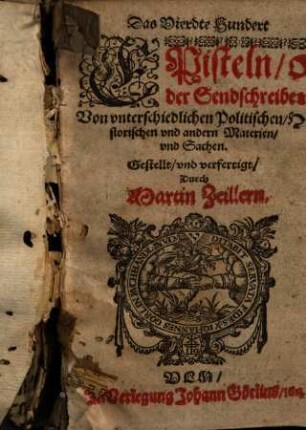 Das Vierdte Hundert
EPisteln/ O
der Sendschreiben
Von vnterschiedlichen Politischen/ Hi
storischen vnd andern Materien/
vnd Sachen.
Gestellt/ vnd verfertigt/
Durch
Martin Zeillern.
DURABIT SERVATA FIDES
IOHANNES GORLIN
VLM/
In Verlegung Johann Görlins/